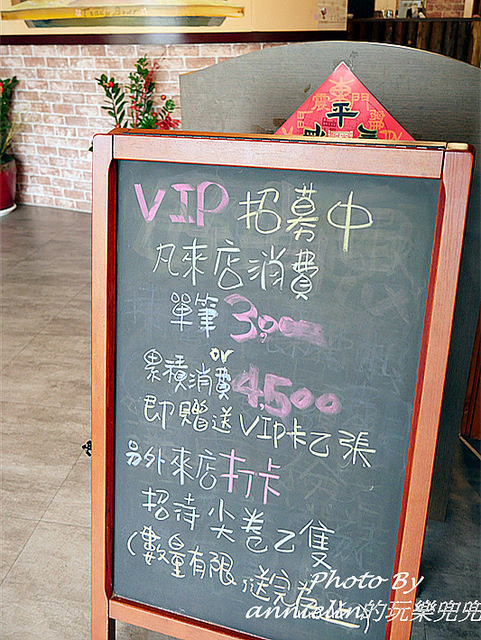 VIP 招募中
凡來店消費
單筆 3,000
or
累積消費 4,500
即贈送VIP卡乙張
另外來店打卡
招待尖卷乙隻
(數量有限 送完為止
Photo By
annielin的玩樂兜兜